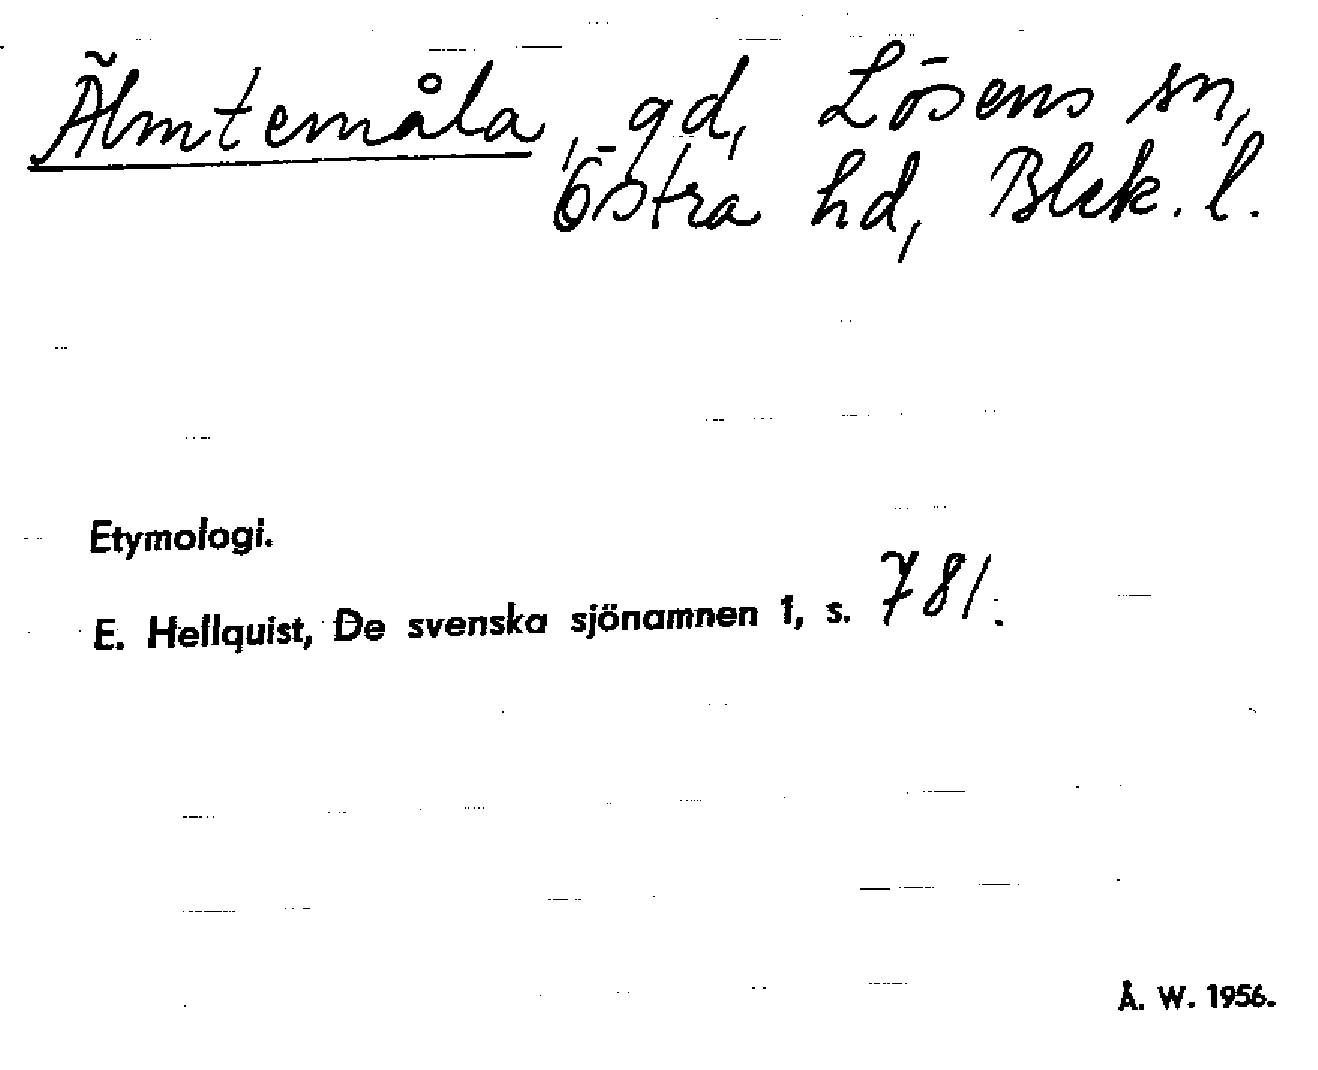 Älmtemåla, gd, Lösens sn,
Östra hd, Blek. l.
Etymologi.
E. Hellquist, De svenska sjönamnen 1, s. 781.
Å. W. 1956.